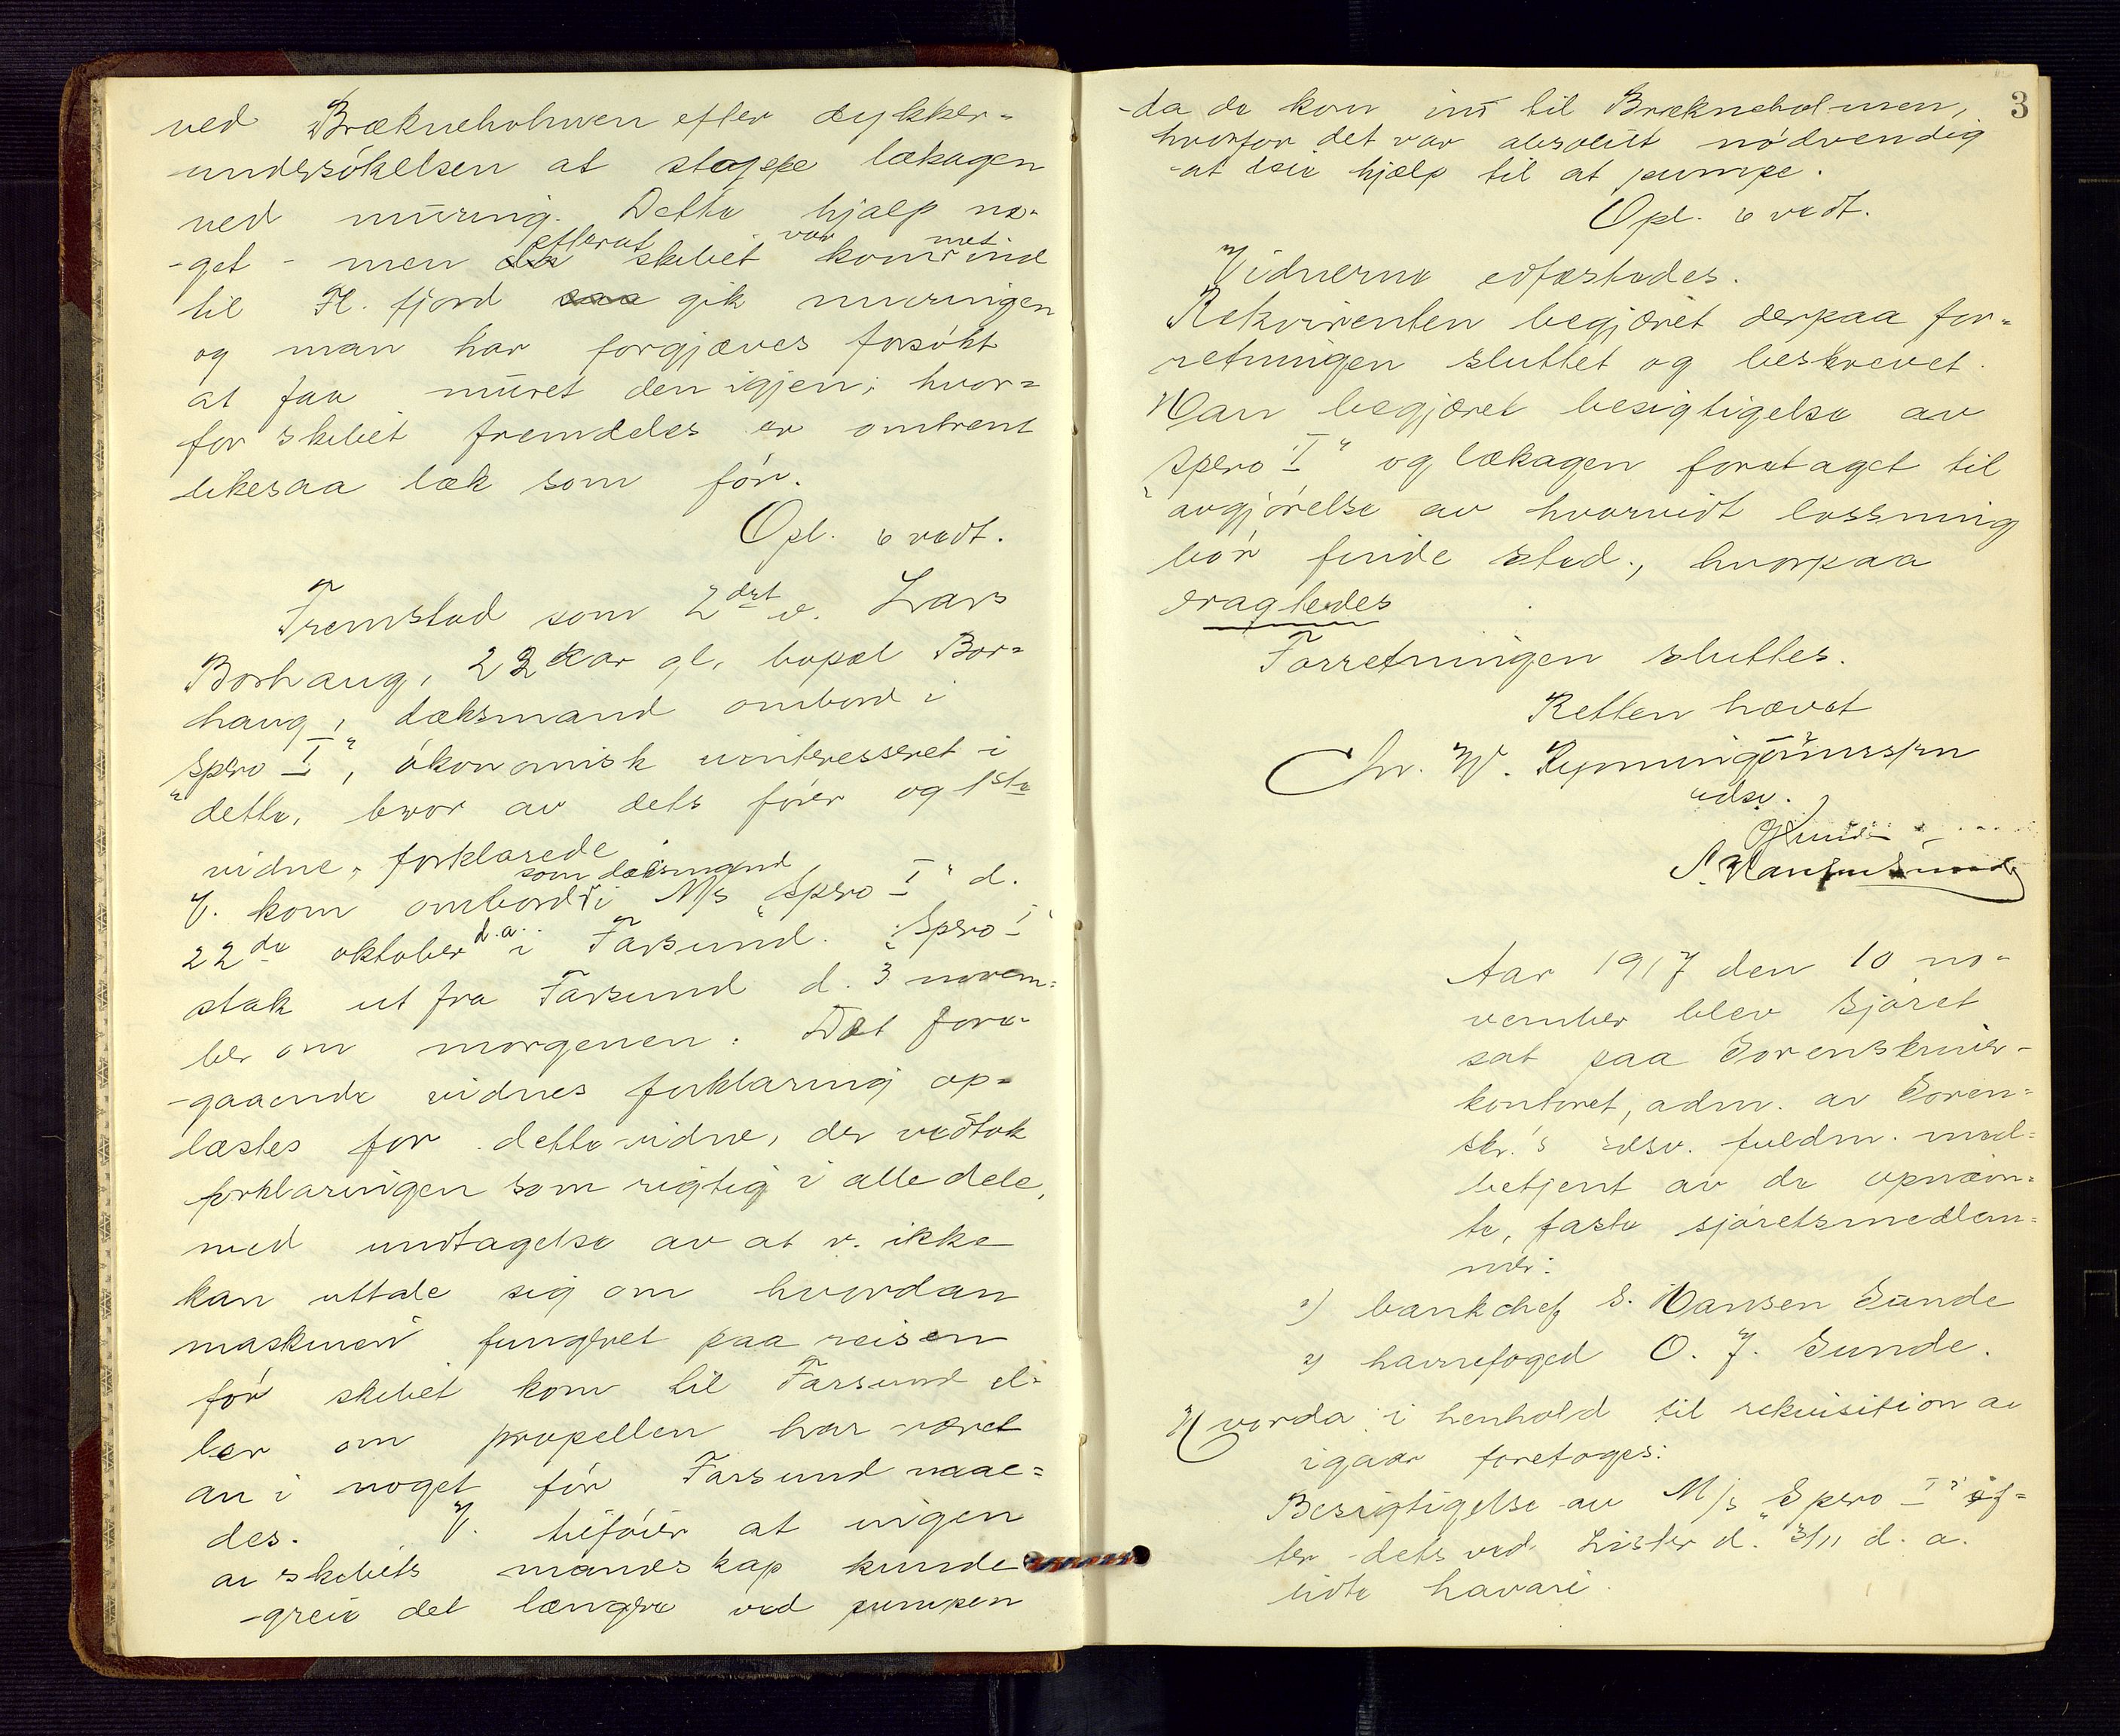 ved Brækneholmen efter dykker-
undersökelsen at stoppe lækagen
ved muring. Dette hjalp no-
-get - men efterat skibet var kommet ind
til Fl. fjord saa gik muringen
og man har forgjæves forsökt
at faa muret den igjen; hvor=
for skibet fremdeles er omtrent
likesaa læk som för.
Opl. & vedt.
Fremstod som 2det v. Lars
Borhaug, 22 aar gl, bopæl Bor=
haug, dæksmand ombord i
"Spero I", ökonomisk uinteresseret i
dette, bror av dets förer og 1ste
vidne, forklarede
V. kom ombord som dæksmand i M/s "Spero I" d.
22de oktober d.a. i Farsund. "Spero I"
stak ut fra Farsund d. 3 novem=
ber om morgenen. Det fore-
-gaaende vidnes forklaring op=
læstes for dette vidne, der vedtok
forklaringen som rigtig i alle dele,
med undtagelse av at v. ikke
kan uttale sig om hvordan
maskinen fungeret paa reisen
för skibet kom til Farsund el-
ler om propellen har været
an i noget för Farsund naae=
des. V. tilföier at ingen
av skibets mandskap kunde
-greie det længere ved pumpen
3
-da de kom ind til Brækneholmen,
hvorfor det var absolut nödvendig
-at leie hjælp til at pumpe.
Opl. & vedt.
Vidnerne edfæstedes.
Rekvirenten begjæret derpaa for=
retningen sluttet og beskrevet.
Man begjæret besigtigelse av
"Spero I" og lækagen foretaget til
avgjörelse av hvorvidt lossning
bör finde sted, hvorpaa
eragtedes
Forretningen sluttes.
Retten hævet
Chr. W.
edsv.
S. Hansen Sunde
Aar 1917 den 10 no-
vember blev Sjöret
sat paa Sorenskriver-
kontoret, adm. av Soren=
skr.'s edsv. fuldm. med=
betjent av de opnævn=
te, faste sjöretsmedlem=
mer:
1) bankchef S. Hansen Sunde
2) havnefoged O. J. Sunde.
Hvorda i henhold til rekvisition av
igaar foretoges:
Besigtigelse av M/s "Spero I" ef=
ter dets ved Lister d. 3/11 d. a.
lidte havari.